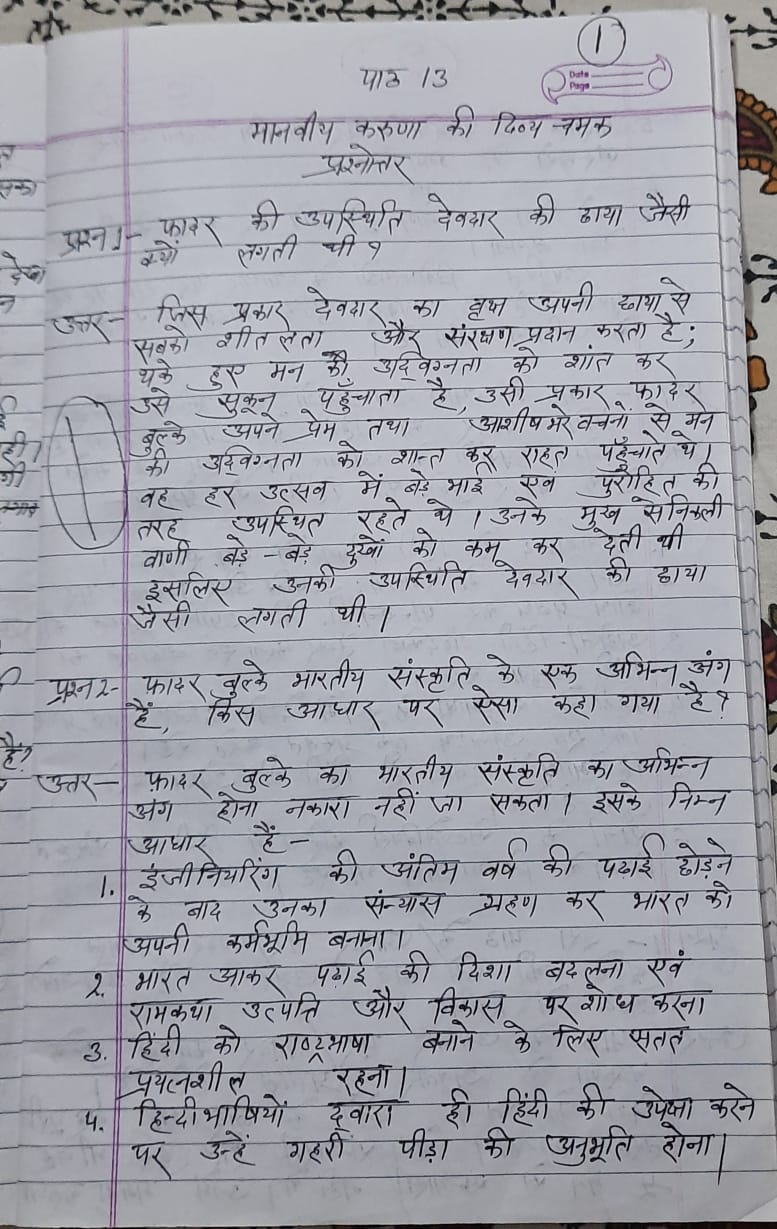 1
पाठ 13
Date
Page
मानवीय करुणा की दिव्य चमक
प्रश्नोत्तर
प्रश्न 1- फादर की उपस्थिति देवदार की छाया जैसी
क्यों लगती थी ?
उत्तर- जिस प्रकार देवदार का वृक्ष अपनी छाया से
सबको शीतलता और संरक्षण प्रदान करता है;
थके हुए मन की उद्विग्नता को शांत कर
उसे सुकून पहुँचाता है, उसी प्रकार फादर
बुल्के अपने प्रेम तथा आशीष भरे वचनों से मन
की उद्विग्नता को शान्त कर राहत पहुँचाते थे।
वह हर उत्सव में बड़े भाई एवं पुरोहित की
तरह उपस्थित रहते थे। उनके मुख से निकली
वाणी बड़े-बड़े दुखों को कम कर देती थी
इसलिए उनकी उपस्थिति देवदार की छाया
जैसी लगती थी।
प्रश्न 2- फ़ादर बुल्के भारतीय संस्कृति के एक अभिन्न अंग
हैं, किस आधार पर ऐसा कहा गया है?
है?
उत्तर- फ़ादर बुल्के का भारतीय संस्कृति का अभिन्न
अंग होना नकारा नहीं जा सकता। इसके निम्न
आधार हैं-
1. इंजीनियरिंग की अंतिम वर्ष की पढाई छोड़ने
के बाद उनका संन्यास ग्रहण कर भारत को
अपनी कर्मभूमि बनाना।
2. भारत आकर पढ़ाई की दिशा बदलना एवं
रामकथा उत्पत्ति और विकास पर शोध करना
3. हिंदी को राष्ट्रभाषा बनाने के लिए सतत
प्रयत्नशील रहना।
4. हिन्दीभाषियों द्वारा ही हिंदी की उपेक्षा करने
पर उन्हें गहरी पीड़ा की अनुभूति होना।